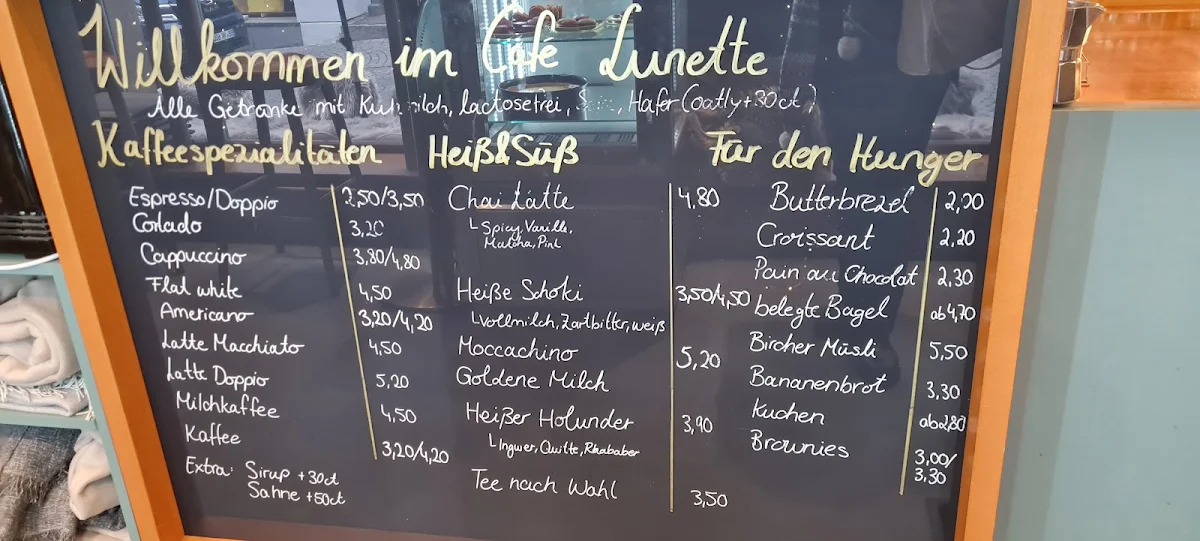 Willkommen im Café Lunette
Alle Getränke mit Kuhmilch, lactosefrei, Hafer (oatly+30ct)
Kaffeespezialitäten
Espresso/Doppio 2,50/3,50
Cortado 3,20
Cappuccino 3,80/4,80
Flat white 4,50
Americano 3,20/4,20
Latte Macchiato 4,50
Latte Doppio 5,20
Milchkaffee 4,50
Kaffee 3,20/4,20
Extra: Sirup +30ct
Sahne +50ct
Heiß&Süß
Chai Latte 4,80
Spicy, Vanille,
Matcha, Pink
Heiße Schoki 3,50/4,50
Vollmilch, Zartbitter, weiß
Moccachino 5,20
Goldene Milch
Heißer Holunder 3,90
Ingwer, Quitte, Rhababer
Tee nach Wahl 3,50
Für den Hunger
Butterbrezel 2,00
Croissant 2,20
Pain au Chocolat 2,30
belegte Bagel ab 4,70
Bircher Müsli 5,50
Bananenbrot 3,30
Kuchen ab 2,80
Brownies 3,00/
3,30